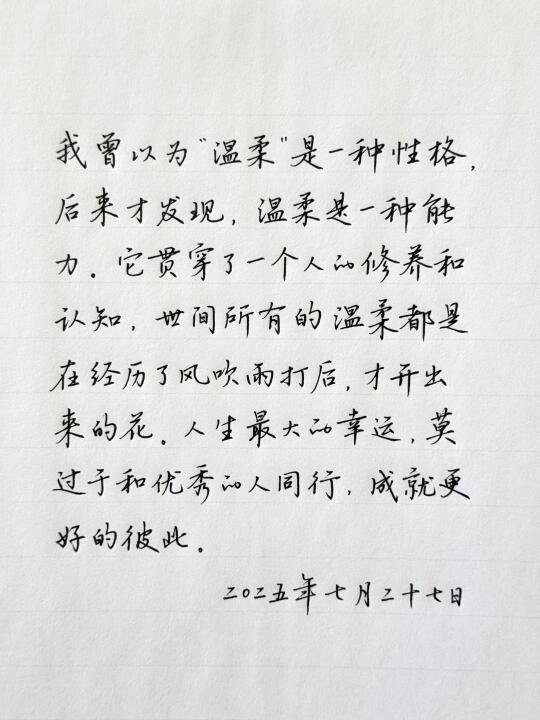 我曾以为“温柔”是一种性格，
后来才发现，温柔是一种能
力。它贯穿了一个人的修养和
认知，世间所有的温柔都是
在经历了风吹雨打后，才开出
来的花。人生最大的幸运，莫
过于和优秀的人同行，成就更
好的彼此。
二〇二五年七月二十七日